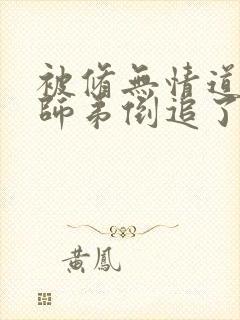 被脩無情道
師弟倒追了
黃鳳